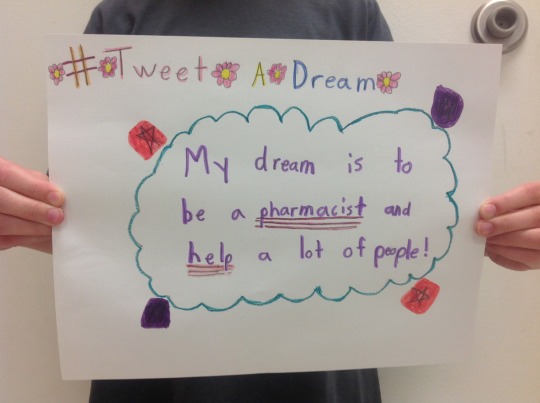 #Tweet A Dream
My dream is to
be a pharmacist and
help a lot of people!